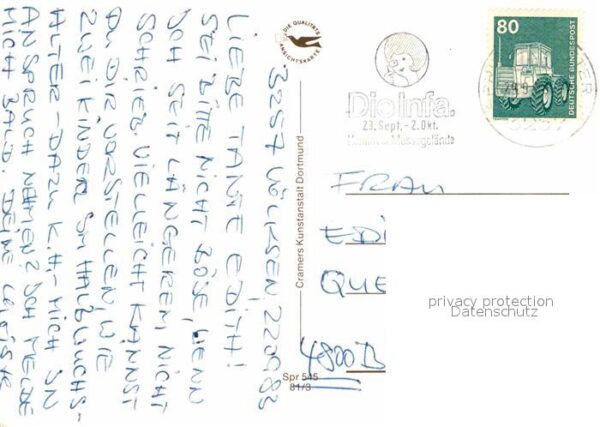 3257 VÖLKSEN, 220983
LIEBE TANTE EDITH!
SEI BITTE NICHT BÖSE, WENN
ICH SEIT LÄNGEREM NICHT
SCHRIEB. VIELLEICHT KANNST
DU DIR VORSTELLEN, WIE
ZWEI KINDER IM HALBWUCHS-
ALTER - DAZU K.H. - MICH IN
ANSPRUCH NEHMEN? ICH MELDE
MICH BALD. DEINE
DIE QUALITÄTS
ANSICHTSKARTE
Cramers Kunstanstalt Dortmund
Spr 545
81/3
Die Infa
23. Sept. - 2. Okt.
Messegelände
80
DEUTSCHE BUNDESPOST
FRAU
EDI
QUE
4800 B
privacy protection
Datenschutz